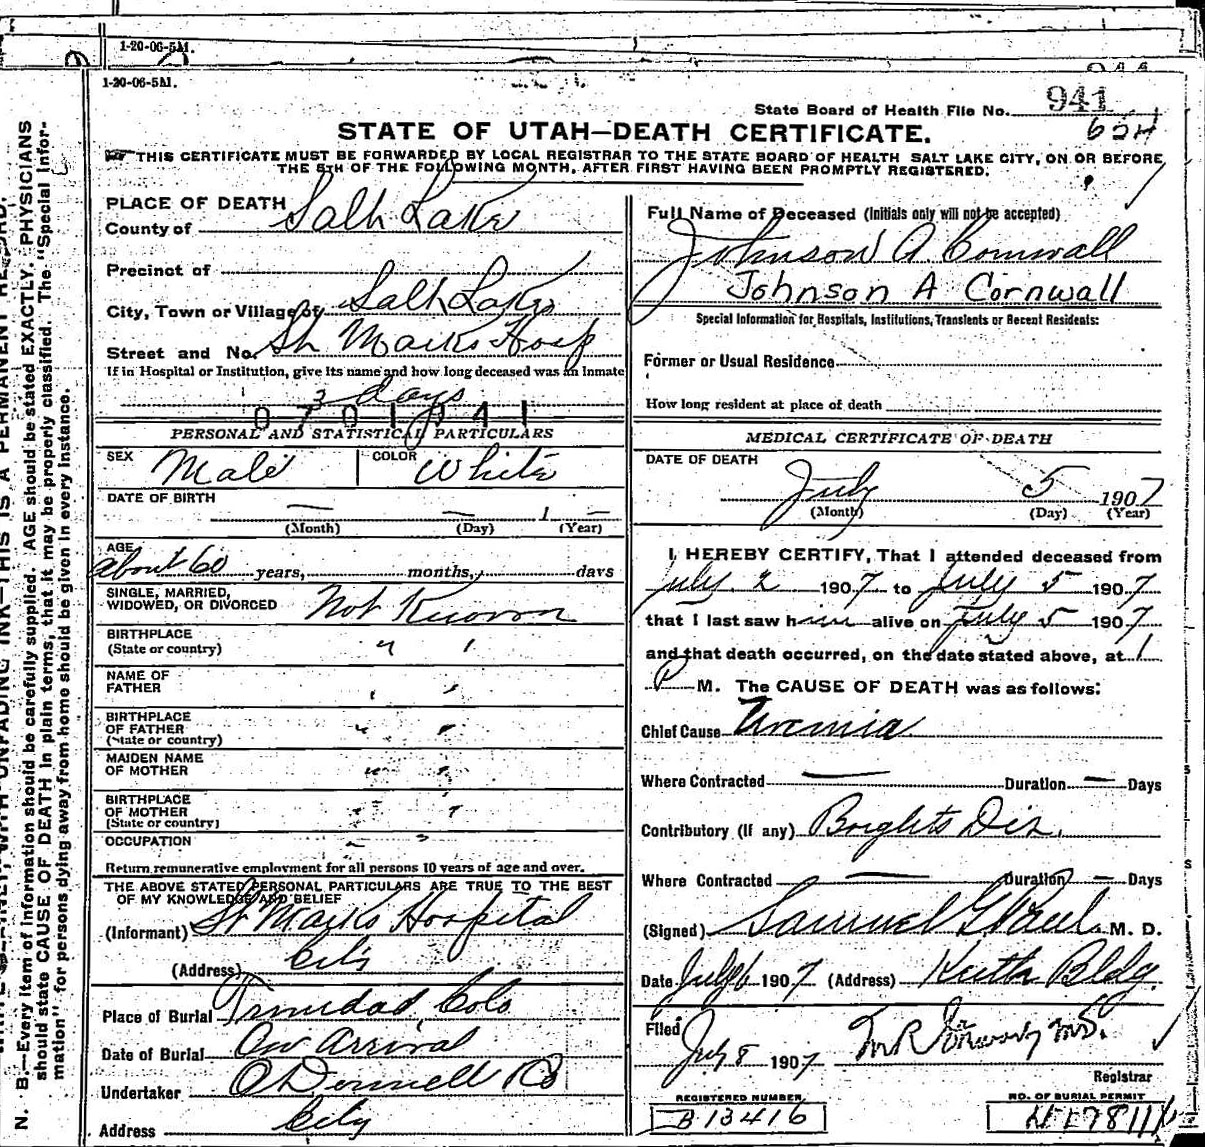 1-20-06-5M.
1-20-06-5M.
State Board of Health File No. 941
624
STATE OF UTAH—DEATH CERTIFICATE.
THIS CERTIFICATE MUST BE FORWARDED BY LOCAL REGISTRAR TO THE STATE BOARD OF HEALTH SALT LAKE CITY, ON OR BEFORE
THE 5TH OF THE FOLLOWING MONTH, AFTER FIRST HAVING BEEN PROMPTLY REGISTERED.
PLACE OF DEATH
County of Salt Lake
Precinct of
City, Town or Village of Salt Lake
Street and No. St Marks Hosp
If in Hospital or Institution, give its name and how long deceased was an inmate
3 days
0701941
PERSONAL AND STATISTICAL PARTICULARS
SEX Male COLOR White
DATE OF BIRTH
— — 1 —
(Month) (Day) (Year)
AGE
about 60 years, months, days
SINGLE, MARRIED,
WIDOWED, OR DIVORCED Not Known
BIRTHPLACE
(State or country) " "
NAME OF
FATHER " "
BIRTHPLACE
OF FATHER
(State or country) " "
MAIDEN NAME
OF MOTHER " "
BIRTHPLACE
OF MOTHER
(State or country) " "
OCCUPATION " "
Return remunerative employment for all persons 10 years of age and over.
THE ABOVE STATED PERSONAL PARTICULARS ARE TRUE TO THE BEST
OF MY KNOWLEDGE AND BELIEF
(Informant) St Marks Hospital
(Address) City
Place of Burial Trinidad, Colo
Date of Burial On Arrival
Undertaker O'Donnell & Co
Address City
Full Name of Deceased (Initials only will not be accepted)
Johnson A. Cornwall
Johnson A Cornwall
Special Information for Hospitals, Institutions, Transients or Recent Residents:
Former or Usual Residence
How long resident at place of death
MEDICAL CERTIFICATE OF DEATH
DATE OF DEATH
July 5 1907
(Month) (Day) (Year)
I HEREBY CERTIFY, That I attended deceased from
July 2 1907 to July 5 1907
that I last saw him alive on July 5 1907
and that death occurred, on the date stated above, at 1
P M. The CAUSE OF DEATH was as follows:
Chief Cause Uremia
Where Contracted — Duration — Days
Contributory (If any) Brights Dis.
Where Contracted — Duration — Days
(Signed) Samuel G. M. D.
Date July 6 1907 (Address) Keith Bldg.
Filed July 8 1907 M.D.
Registrar
REGISTERED NUMBER
B 13416
NO. OF BURIAL PERMIT
N. B.—Every item of information should be carefully supplied. AGE should be stated EXACTLY. PHYSICIANS
should state CAUSE OF DEATH in plain terms, that it may be properly classified. The "Special Infor-
mation" for persons dying away from home should be given in every instance.